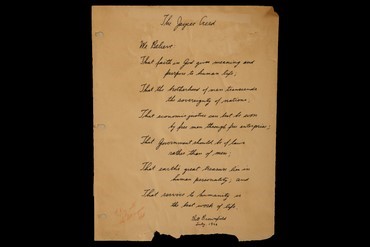 The Jaycee Creed
We Believe
That faith in God gives meaning and
purpose to human life;
That the brotherhood of men transcends
the sovereignty of nations;
That economic justice can best be won
by free men through free enterprise;
That Government should be of laws
rather than of men;
That earth's great treasure lies in
human personality; and
That service to humanity is
the best work of life
Bill Brownfield
July